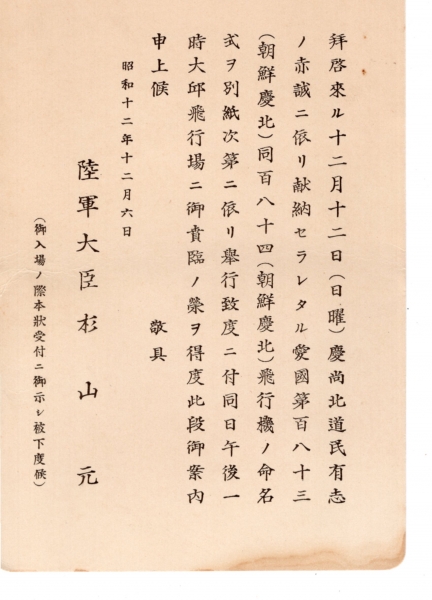 拜啓來ル十二月十二日(日曜)慶尚北道民有志
ノ赤誠ニ依リ献納セラレタル愛國第百八十三
(朝鮮慶北)同百八十四(朝鮮慶北)飛行機ノ命名
式ヲ別紙次第ニ依リ擧行致度ニ付同日午後一
時大邱飛行場ニ御賁臨ノ榮ヲ得度此段御案内
申上候 敬具
昭和十二年十二月六日
陸軍大臣杉山元
(御入場ノ際本狀受付ニ御示シ被下度候)